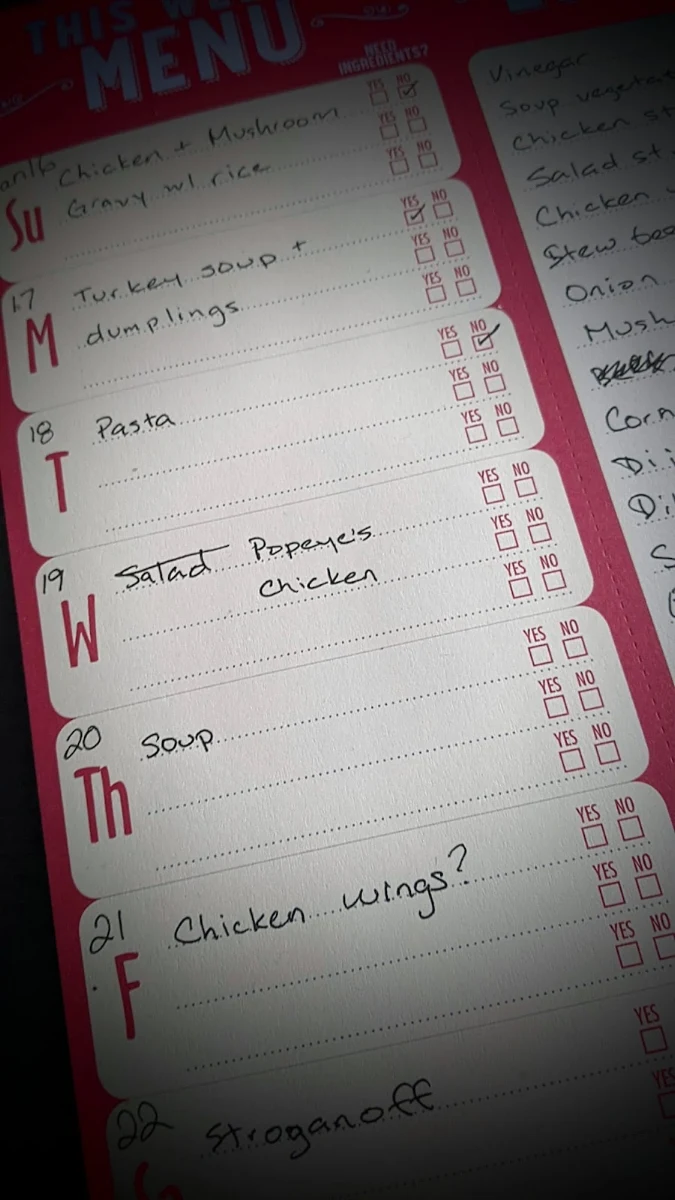 THIS WE
MENU
NEED
INGREDIENTS?
YES NO
Chicken + Mushroom
YES NO
Su Gravy w/ rice
YES NO
17 Turkey soup +
YES NO
M dumplings
YES NO
YES NO
18 Pasta
YES NO
T
YES NO
YES NO
19 Salad Popeye's
YES NO
W Chicken
YES NO
YES NO
20 Soup
YES NO
Th
YES NO
YES NO
21 Chicken wings?
YES NO
F
YES NO
YES NO
22 Stroganoff
YES
YES
Vinegar
Soup vegeta
Chicken st
Salad st
Chicken
Stew bee
Onion
Mush
Corn